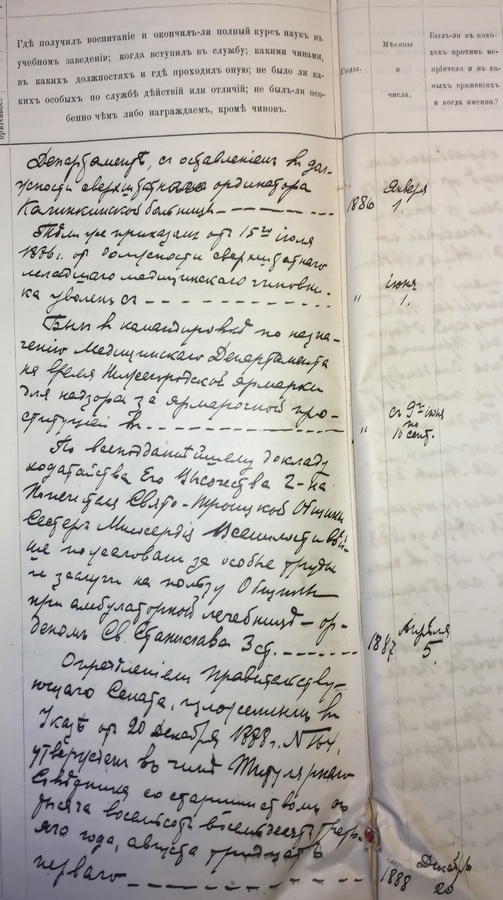 Гдѣ получилъ воспитаніе и окончилъ-ли полный курсъ наукъ въ
учебномъ заведеніи; когда вступилъ въ службу; какими чинами,
въ какихъ должностяхъ и гдѣ проходилъ оную; не было ли ка-
кихъ особыхъ по службѣ дѣйствій или отличій; не былъ-ли осо-
бенно чѣмъ либо награждаемъ, кромѣ чиновъ.
Годы.
Мѣсяцы
и
числа.
Былъ-ли въ похо-
дахъ противъ не-
пріятеля и въ са-
мыхъ сраженіяхъ
и когда именно?
Департаментѣ, съ оставленіемъ въ дол-
жности сверхштатнаго ординатора
Калинкинской больницы
1886 Января 1.
Тѣмъ же приказомъ отъ 15го іюля
1886 г. отъ должности сверхштатнаго
младшаго медицинскаго чиновни-
ка уволенъ съ
" іюня 1.
Былъ въ командировкѣ по назна-
ченію Медицинскаго Департамента
на время Нижегородской ярмарки
для надзора за ярмарочной про-
ституціей въ
" съ 9го іюня по 10 сент.
По всеподданнѣйшему докладу
ходатайства Его Высочества
Попечителя Свято-Троицкой Общины
Сестеръ Милосердія Всемилостивѣй-
ше пожалованъ за особые труды
и заслуги на пользу Общины
при амбулаторной лечебницѣ – ор-
деномъ Св. Станислава 3 ст.
1887 Апрѣля 5.
Опредѣленіемъ Правительству-
ющаго Сената, изложеннымъ въ
Указѣ отъ 20 Декабря 1888 г. №
утвержденъ въ чинѣ Титулярнаго
Совѣтника со старшинствомъ съ
тысяча восемьсотъ восемьдесятъ
года, августа тридцать
перваго
1888 Декабрь 20